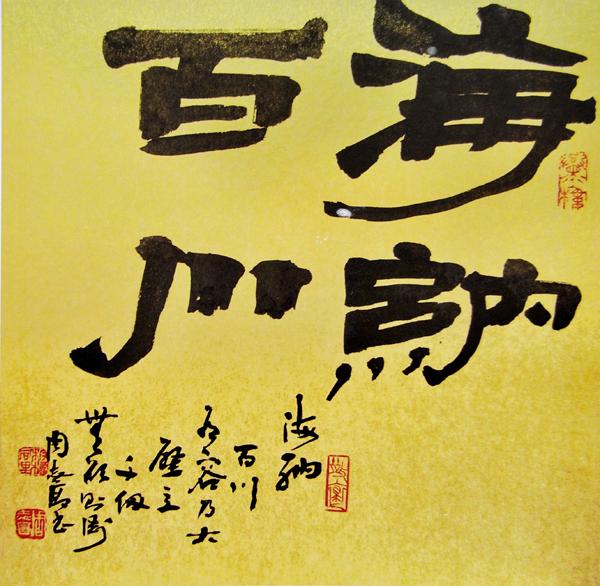 海納
百川
海納
百川
有容乃大
壁立
千仞
無欲則剛
周